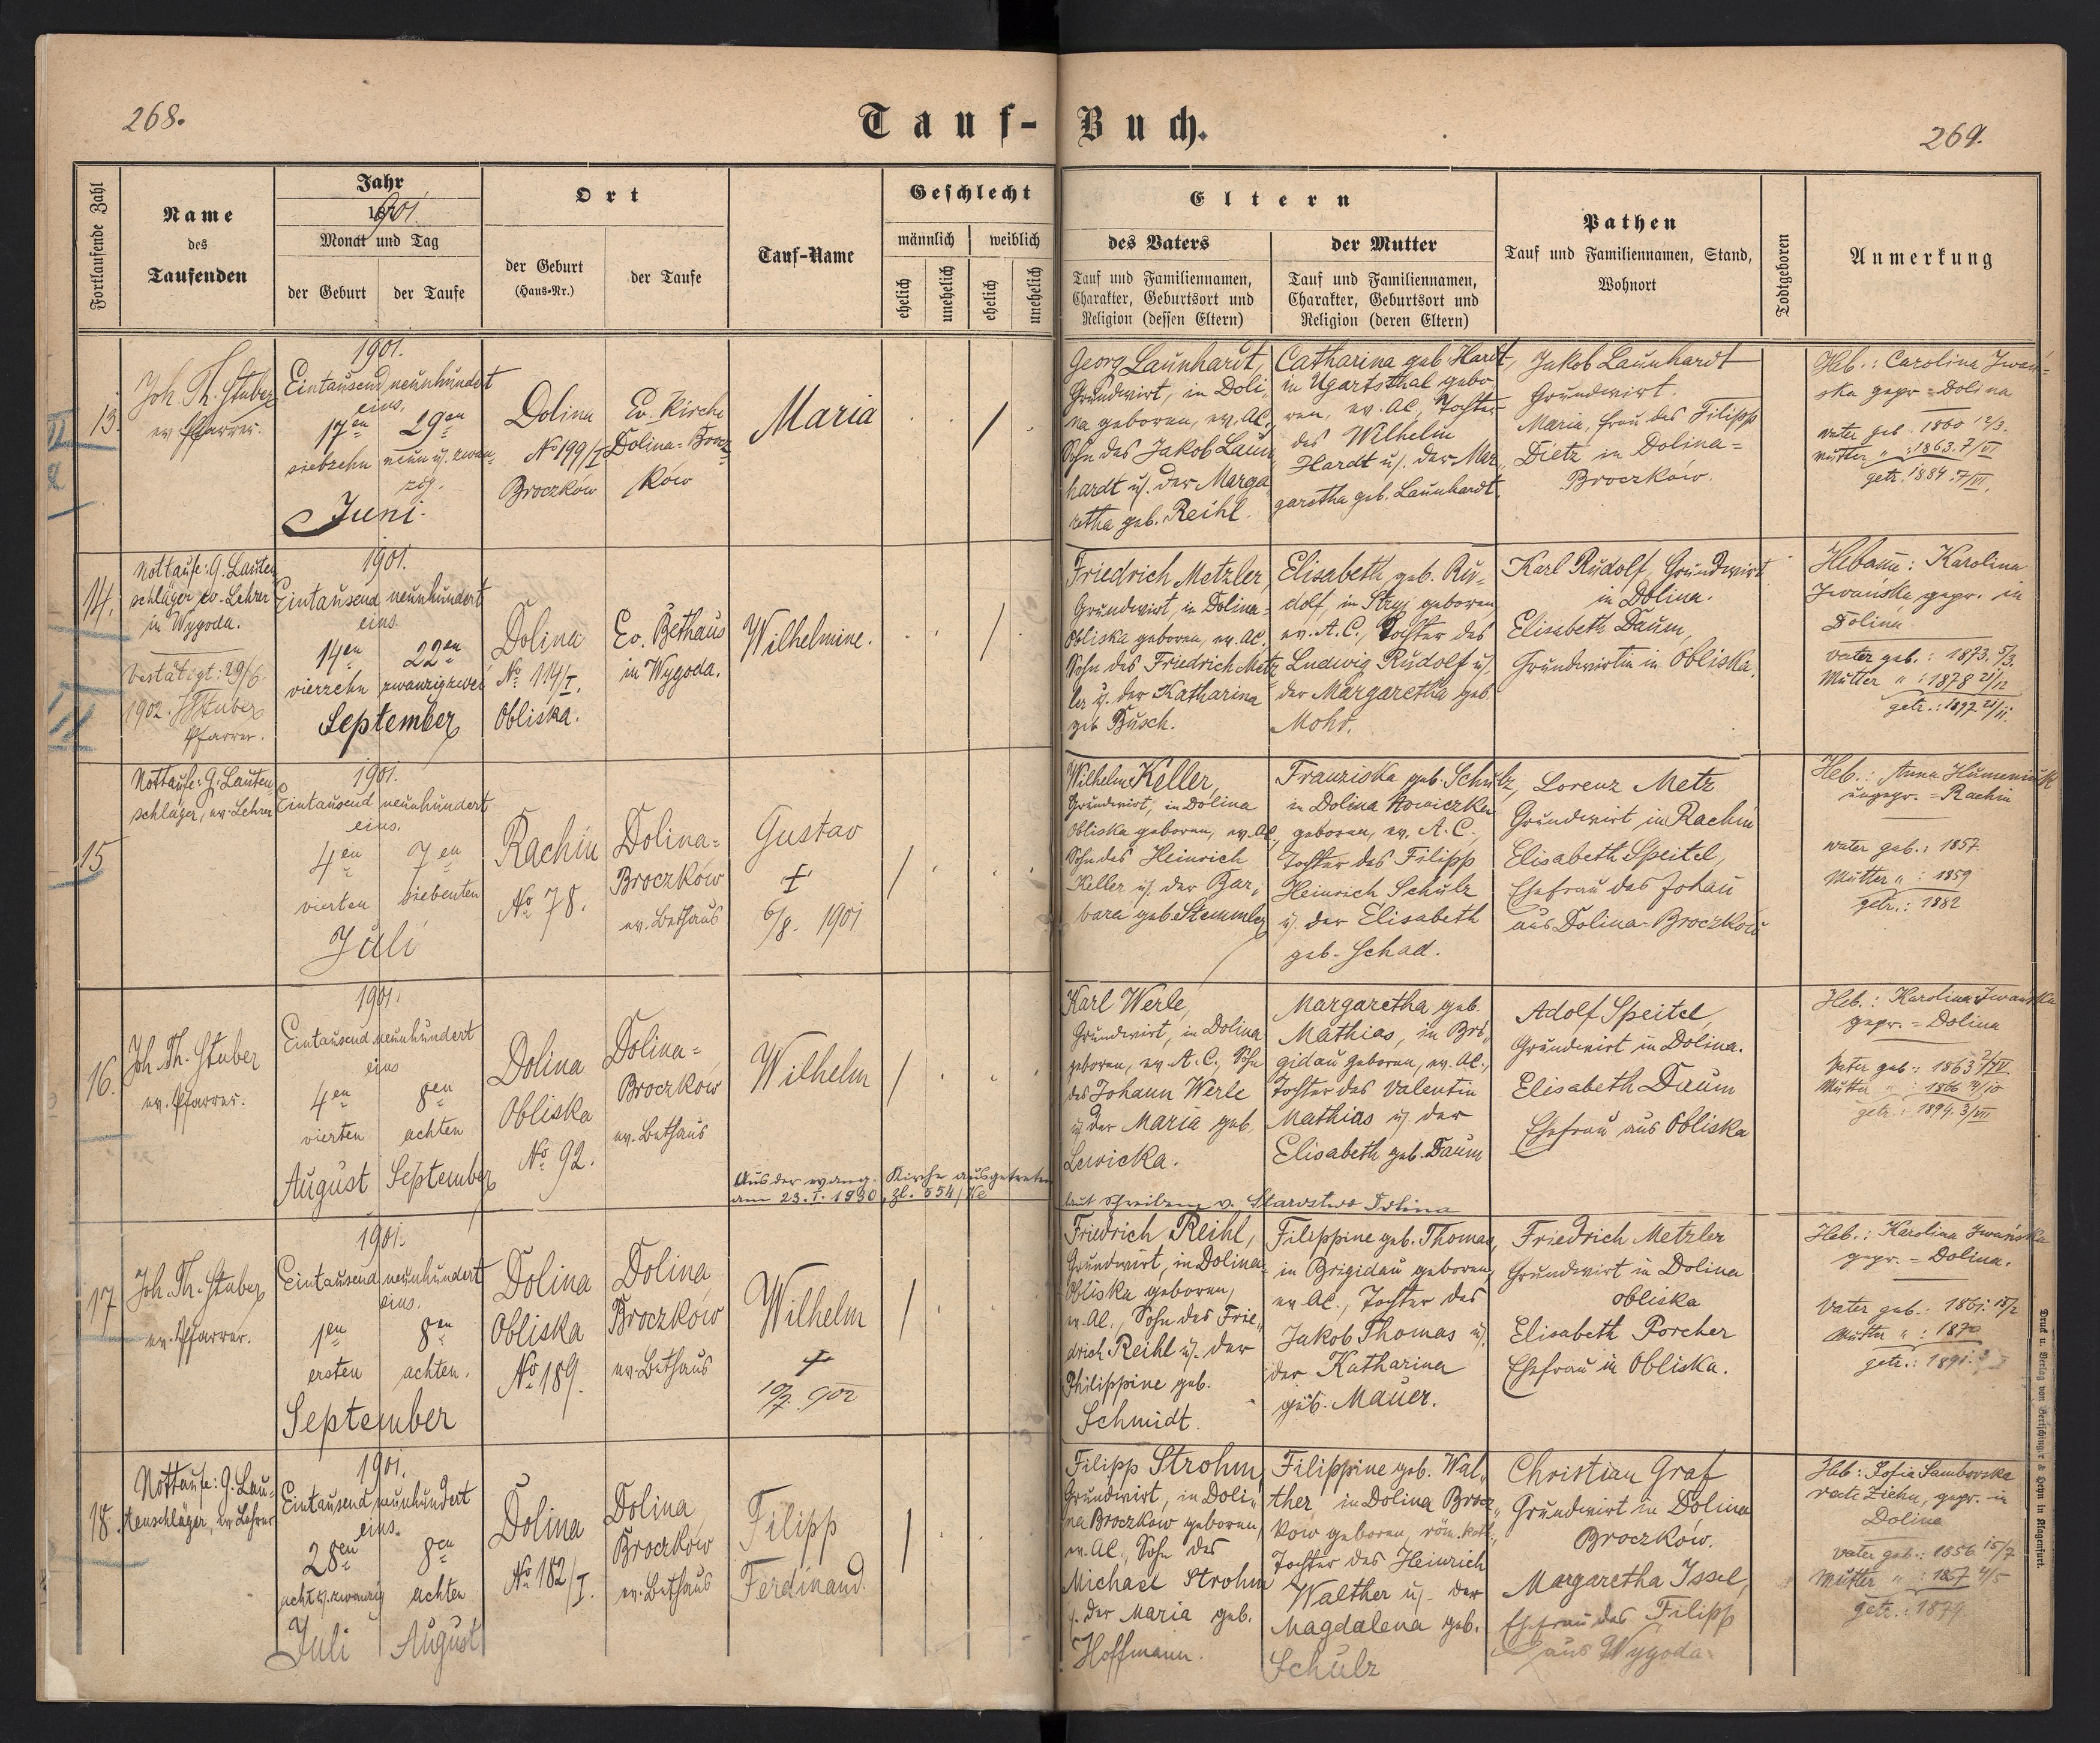 268.
Tauf-Buch.
269.
Fortlaufende Zahl
Name
des
Taufenden
Jahr
1901.
Monat und Tag
der Geburt
der Taufe
Ort
der Geburt
(Haus-Nr.)
der Taufe
Tauf-Name
Geschlecht
männlich
weiblich
ehelich
unehelich
ehelich
unehelich
Eltern
des Vaters
Tauf und Familiennamen,
Charakter, Geburtsort und
Religion (dessen Eltern)
der Mutter
Tauf und Familiennamen,
Charakter, Geburtsort und
Religion (deren Eltern)
Pathen
Tauf und Familiennamen, Stand,
Wohnort
Todtgeboren
Anmerkung
13.
Joh. Th. Stuber
ev. Pfarrer.
1901.
Eintausend neunhundert
eins.
17en
siebzehn
29en
neun u. zwan-
zig.
Juni.
Dolina
No 199/I
Broczków
Ev. Kirche
Dolina-Brocz-
ków
Maria
/
Georg Launhardt,
Grundwirt, in Doli-
na geboren, ev. AC.,
Sohn des Jakob Laun-
hardt u. der Marga-
retha geb. Reihl.
Catharina geb. Hardt,
in Ugartsthal gebo-
ren, ev. AC, Tochter
des Wilhelm
Hardt u. der Mar-
garetha geb. Launhardt.
Jakob Launhardt
Grundwirt.
Maria, Frau des Filipp
Dietz in Dolina-
Broczków.
Heb.: Carolina Iwań-
ska gepr = Dolina
Vater geb. 1860 12/3.
Mutter " : 1863. 7/VI
getr. 1884 7/VI.
14.
Nottaufe: G. Lauten
schläger ev. Lehrer
in Wygoda.
Bestätigt: 29/6.
1902. JThStuber
Pfarrer.
1901.
Eintausend neunhundert
eins
14en
vierzehn
22en
zwanzigzwei
September
Dolina
No 114/I.
Obliska.
Ev. Bethaus
in Wygoda.
Wilhelmine.
/
Friedrich Metzler
Grundwirt, in Dolina-
Obliska geboren, ev. AC,
Sohn des Friedrich Metz
ler u. der Katharina
geb. Busch.
Elisabeth geb. Ru-
dolf, in Stryj geboren
ev. A.C., Tochter des
Ludwig Rudolf u.
der Margaretha geb.
Mohr.
Karl Rudolf, Grundwirt
in Dolina.
Elisabeth Daum,
Grundwirtin in Obliska.
Hebame: Karolina
Iwańska, gepr. in
Dolina.
Vater geb.: 1873. 5/3.
Mutter " : 1878 21/12
getr.: 1897. 21/11.
15
Nottaufe: G. Lauten
schläger, ev. Lehrer
1901.
Eintausend neunhundert
eins.
4en
vierten
7en
siebenten
Juli
Rachin
No 78.
Dolina-
Broczków
ev. Bethaus
Gustav
†
6/8. 1901
/
Wilhelm Keller,
Grundwirt, in Dolina
Obliska geboren, ev. AC,
Sohn des Heinrich
Keller u. der Bar-
bara geb Stemmler
Franziska geb. Schulz,
in Dolina Nowiczka
geboren, ev. A.C.,
Tochter des Filipp
Heinrich Schulz
u. der Elisabeth
geb. Schad.
Lorenz Metz
Grundwirt in Rachin
Elisabeth Speitel,
Ehefrau des Johan
aus Dolina-Broczków
Heb.: Anna Humeniuk
ungepr. = Rachin
Vater geb.: 1857.
Mutter " : 1859
getr.: 1882
16.
Joh. Th. Stuber
ev. Pfarrer.
1901.
Eintausend neunhundert
eins
4en
vierten
8en
achten
August
September
Dolina
Obliska
No. 92.
Dolina-
Broczków
ev. Bethaus
Wilhelm
/
Aus der evang. Kirche ausgetreten
am 23.I.1930, Zl. 554/
laut Schreiben v. Starostwo Dolina
Karl Werle,
Grundwirt, in Dolina
geboren, ev. A.C., Sohn
des Johann Werle
u. der Maria geb.
Lewicka.
Margaretha geb.
Mathias, in Bri-
gidau geboren, ev. AC.,
Tochter des Valentin
Mathias u. der
Elisabeth geb. Daum
Adolf Speitel,
Grundwirt in Dolina.
Elisabeth Daum
Ehefrau aus Obliska
Heb.: Karolina Iwańska
gepr. = Dolina
Vater geb.: 1863 2/IV.
Mutter " : 1866
getr.: 1894. 3/VII
17
Joh. Th. Stuber
ev. Pfarrer.
1901.
Eintausend neunhundert
eins.
1en
ersten
8en
achten.
September
Dolina
Obliska
No 189.
Dolina
Broczków
ev. Bethaus
Wilhelm
†
10/7. 902
/
Friedrich Reihl,
Grundwirt, in Dolina-
Obliska geboren,
ev. AC., Sohn des Frie-
drich Reihl u. der
Philippine geb.
Schmidt.
Filippine geb. Thomas,
in Brigidau geboren,
ev. AC., Tochter des
Jakob Thomas u.
der Katharina
geb. Mauer.
Friedrich Metzler
Grundwirt in Dolina
Obliska
Elisabeth Porcher
Ehefrau in Obliska.
Heb.: Karolina Iwańska
gepr. = Dolina.
Vater geb.: 1861. 18/2
Mutter " : 1870
getr.: 1891.
18.
Nottaufe: G. Lau-
tenschläger, ev. Lehrer
1901.
Eintausend neunhundert
eins.
28en
acht u. zwanzig
8en
achten
Juli
August
Dolina
No 182/I.
Dolina
Broczków
ev. Bethaus
Filipp
Ferdinand.
/
Filipp Strohm,
Grundwirt, in Doli-
na Broczkow geboren,
ev. AC., Sohn des
Michael Strohm
u. der Maria geb.
Hoffmann.
Filippine geb. Wal-
ther in Dolina Brocz-
kow geboren, röm. kath.,
Tochter des Heinrich
Walther u. der
Magdalena geb.
Schulz
Christian Graf
Grundwirt in Dolina
Broczków.
Margaretha Issel,
Ehefrau des Filipp
aus Wygoda.
Heb: Sofia Samborska
recte Ziehn, gepr. in
Dolina
Vater geb.: 1856 15/7
Mutter " : 1857 4/5
getr.: 1879.
Druck u. Verlag von Bertschinger & Heyn in Klagenfurt.